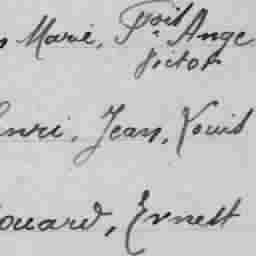 Marie, Ange
Victor
enri, Jean, Louis
ouard, Ernest